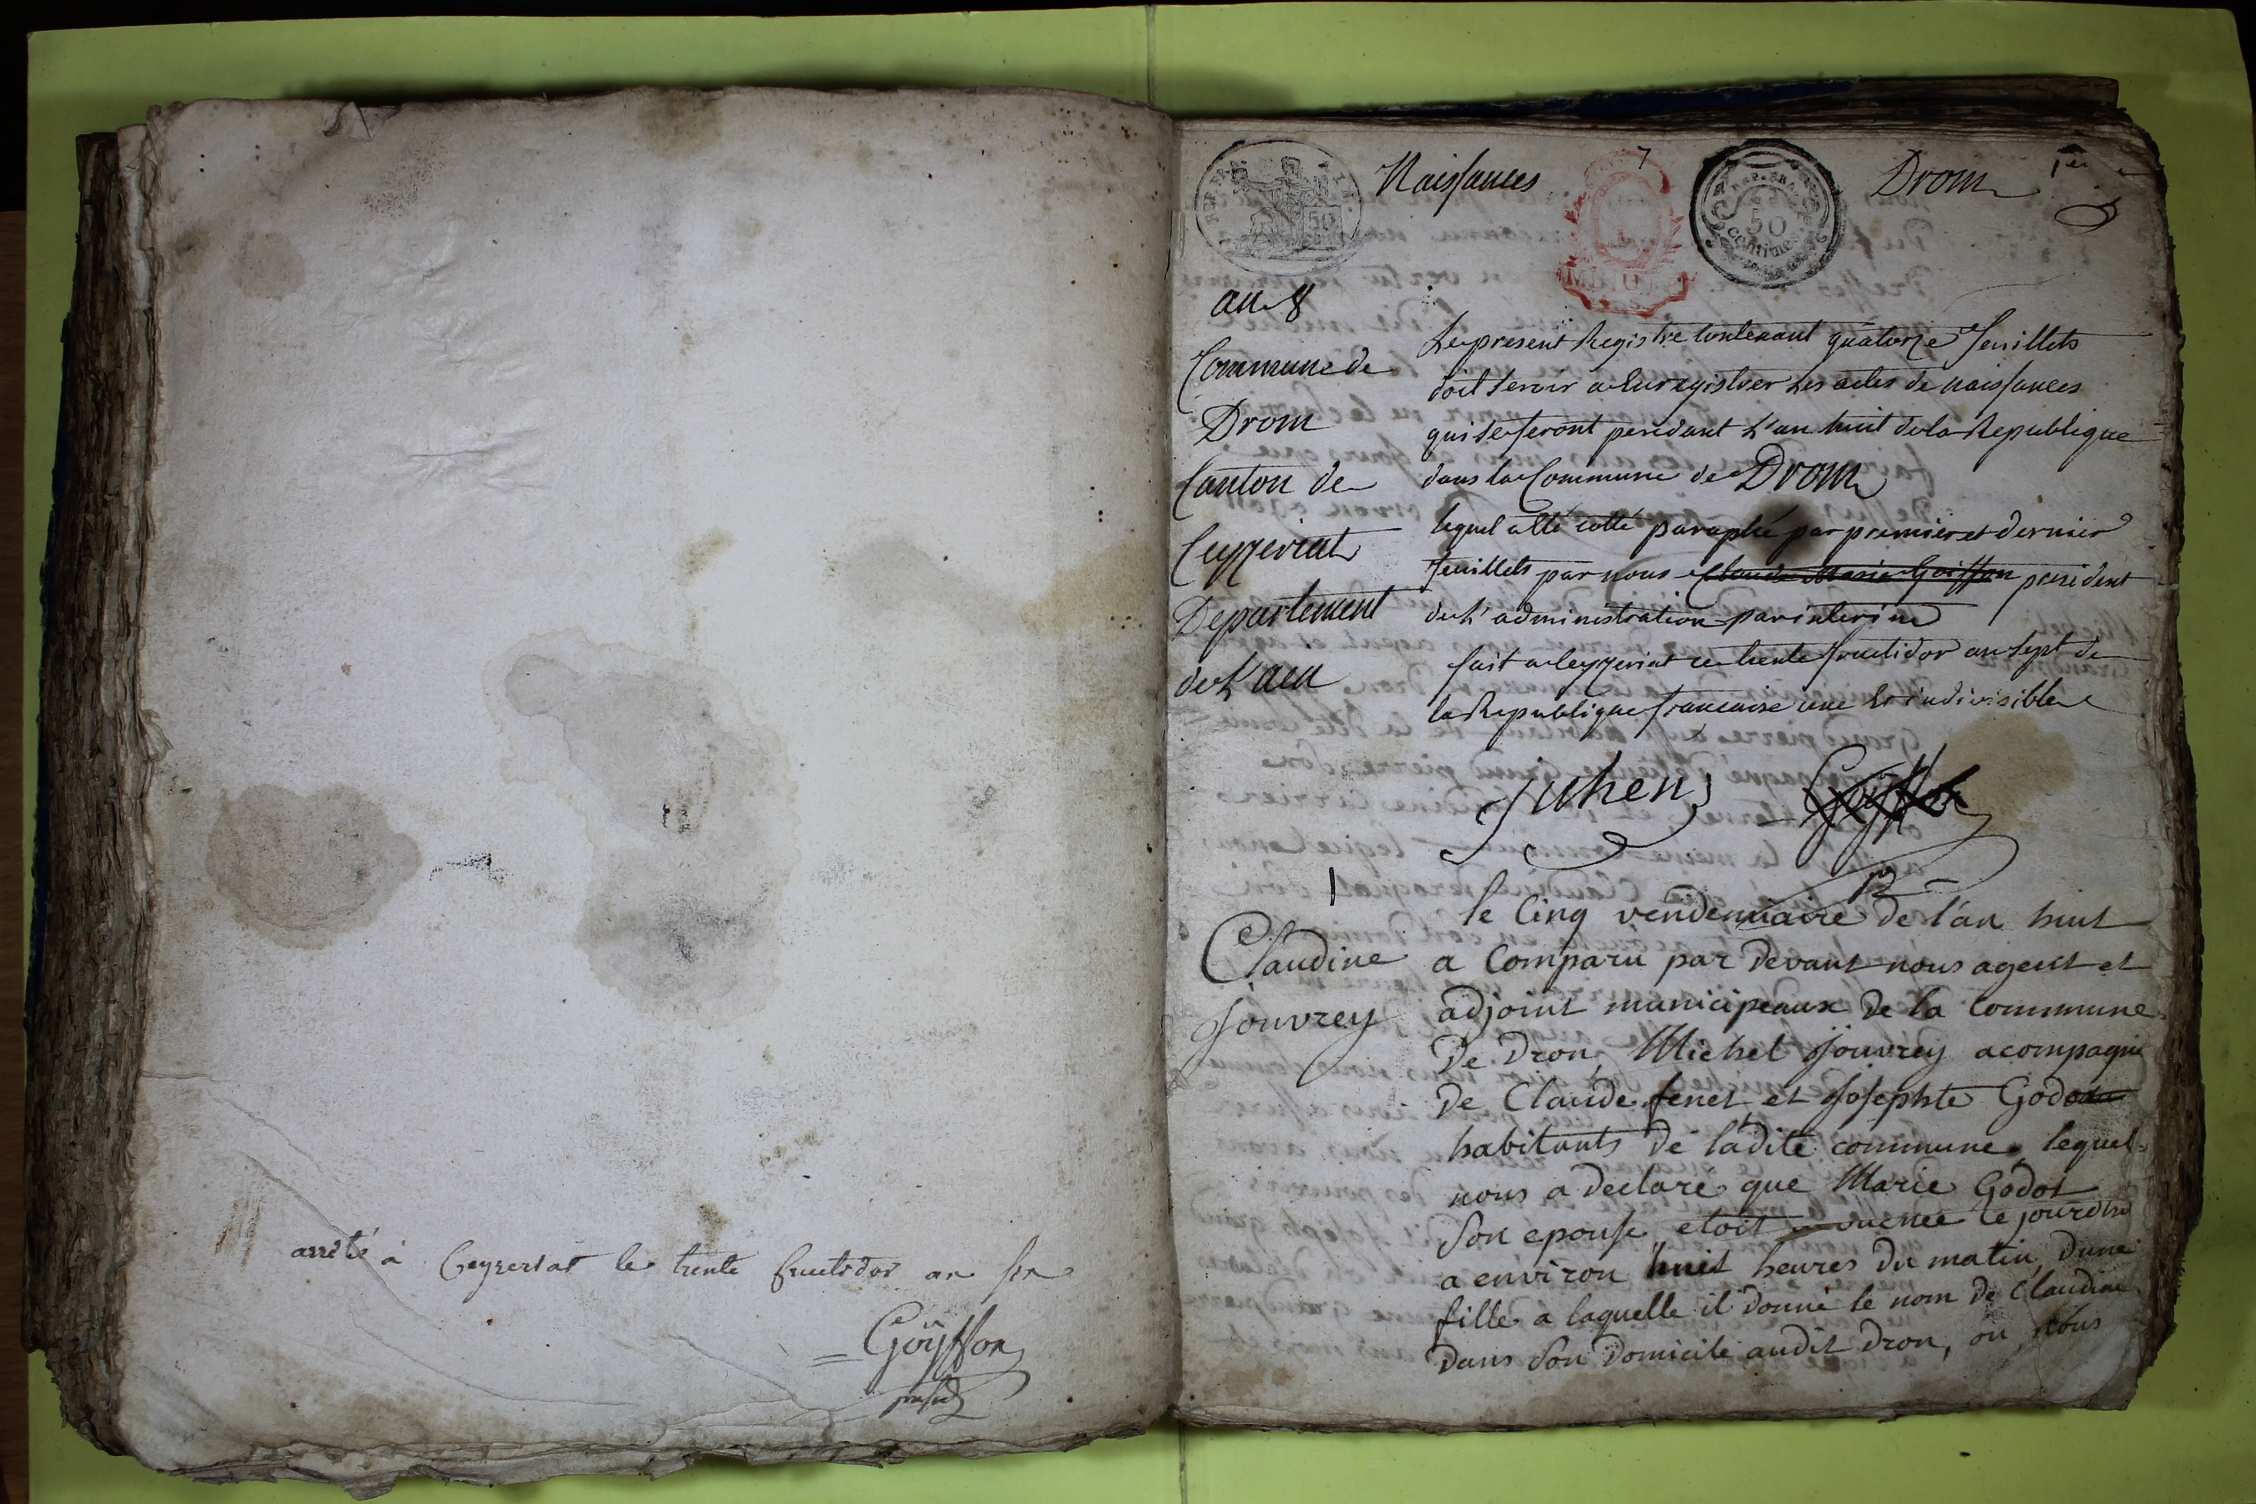 arrêté à Ceyzeriat le trente fructidor an
Goÿffon
Naissances
7
Drom
1er
50
REP. FRA.
50
centimes
an 8
Commune de
Drom
Canton de
Ceyzeriat
Departement
de L'ain
Le present Registre contenant quatorze feuillets
doit servir a Enregistrer Les actes de naissances
qui se feront pendant L'an huit de la Republique
dans la Commune de Drom
lequel a été cotté paraphé par premier et dernier
feuillets par nous Claude Marie Goiffon president
de L'administration par interim
fait a Ceyzeriat ce trente fructidor an Sept de
la Republique francaise une Et indivisible
Juhen
Goÿffon
1
Claudine
Jouvrey
le Cinq vendemiaire de l'an huit
a Comparu par devant nous agent et
adjoint municipeaux de la Commune
De Dron, Michel Jouvrey acompagné
de Claude fenet et Josephte Godot
habitants de ladite commune, lequel
nous a declaré que Marie Godot
Son epouse etoit acuchee ce jourdhui
a environ huit heures du matin, Dune
fille a laquelle il donné le nom de Claudine
Dans Son Domicile audit Dron, ou nous